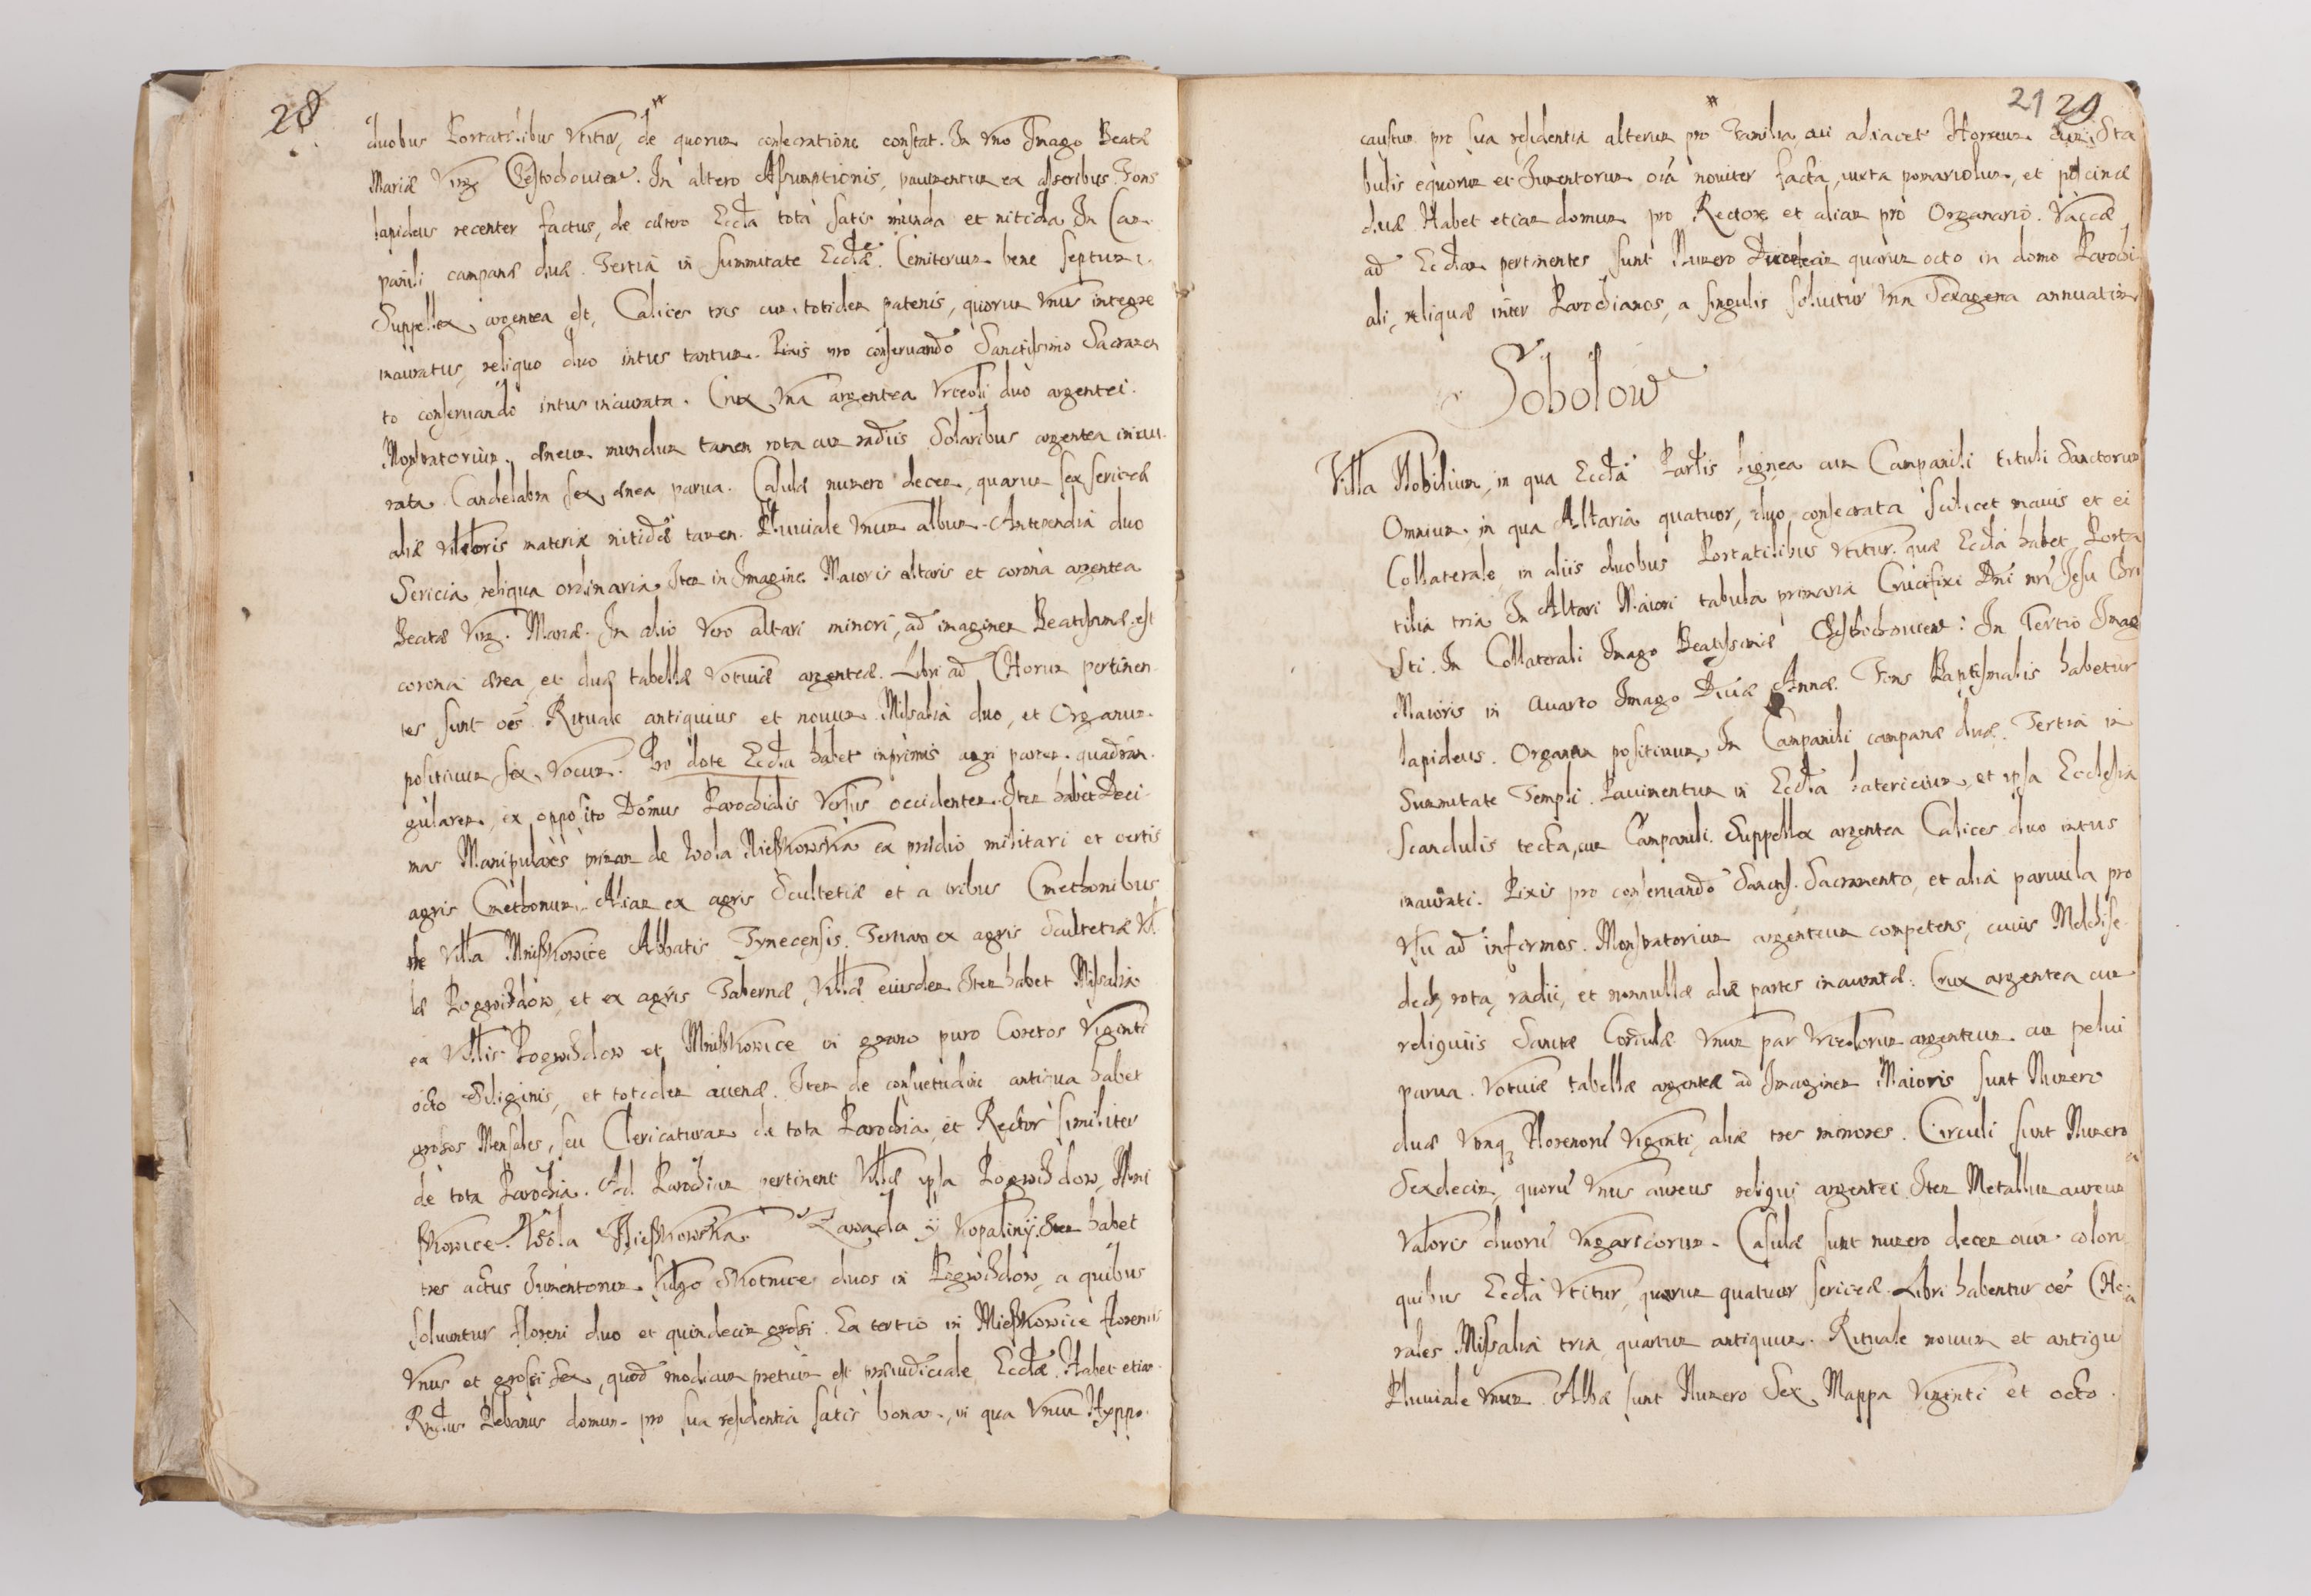 28
duobus Portatilibus Vtitur, de quorum consecratione constat. In vno Imago Beatæ
Mariæ Virg Cżęstochouien. In altero Assumptionis, pauimentum ex asseribus. Fons
lapideus recenter factus, de cætero Eccła tota satis munda et nitida. In Cam
panili campanæ duæ. Tertia in summitate Eccłæ. Cemiterium bene septum.
Suppellex argentea est, Calices tres cum totidem patenis, quorum Vnus integre
inauratus, reliquo duo intus tantum. Pixis pro conseruando Sanctissimo Sacramen
to conseruando intus inaurata. Crux Vna argentea Vrceoli duo argentei.
Monstratorium æneum mundum tamen rota cum radiis Solaribus argentea inau
rata. Candelabra sex ænea parua. Casulæ numero decem, quarum sex sericeæ
aliæ vilioris materiæ nitidæ tamen. Pluuiale Vnum album. Antependia duo
Sericia, reliqua ordinaria. Item in Imagine Maioris altaris et corona argentea
Beatæ Virg. Mariæ. In alio Vero altari minori, ad imaginem Beatissimæ est
corona ærea, et duæ tabellæ votiuæ argenteæ. Libri ad CHorum pertinen
tes sunt oēs. Rituale antiquius et nouum. Missalia duo, et Organum
positiuum sex Vocum. Pro dote Eccła habet inprimis agri partem quadran
gularem, ex opposito Domus Parochialis Versus occidentem. Item habet Deci
mas Manipulares primam de Wola Mieszkowska ex prædio militari et certis
agris Cmethonum. Aliam ex agris Scultetiæ et a tribus Cmethonibus
de Villa Mniszkowice Abbatis Tynecensis. Tertiam ex agris Scultetiæ Vil
læ Pogwizdow, et ex agris Tabernæ, Villæ eiusdem. Item habet Missalia
ex Villis Pogwizdow et Mniszkowice in grano puro Coretos Viginti
octo Siliginis, et totidem auenæ. Item de consuetudine antiqua habet
grossos Mensales, seu Clericaturam de tota Parochia, et Rector similiter
de tota Parochia. Ad Parochiam pertinent Villæ ipsa Pogwizdow, Mni
szkowice. Wola Mieszkowska. Zawada y Kopaliny. Item habet
tres actus Iumentorum Vulgo Skotnice duos in Pogwizdow, a quibus
soluuntur floreni duo et quindecim grossi. Ex tertio in Mieszkowice florenus
Vnus et grossi sex, quod modicum pretium est præiudiciale Eccłæ. Habet etiam
Rndus Plebanus domum pro sua residentia satis bonam, in qua Vnum Hyppo
21 29
caustum pro sua residentia alterum pro Familia, cui adiacet Horreum cum Sta
bulis equorum et Iumentorum oīa nouiter facta, iuxta pomariolum, et piscinæ
duæ. Habet etiam domum pro Rectore et aliam pro Organario. Vaccæ
ad Eccłam pertinentes sunt Numero Duodecim quarum octo in domo Parochi
ali, reliquæ inter Parochianos, a singulis soluitur Vna Sexagena annuatim
Sobolow
Villa Nobilium, in qua Eccła Parlis lignea cum Campanili tituli Sanctorum
Omnium, in qua Altaria quatuor, duo consecrata scilicet maius et ei
Collaterale, in aliis duobus Portatilibus vtitur. quæ Eccła habet Porta
tilia tria. In Altari Maiori tabula primaria Crucifixi Dni nri Jesu Chri
sti. In Collaterali Imago Beatissimæ Częstochouien: In Tertio Imag
Maioris in Quarto Imago Diuæ Annæ. Fons Baptismalis habetur
lapideus. Organum positiuum. In Campanili campanæ duæ. Tertia in
Summitate Templi. Pauimentum in Eccła latericium, et ipsa Ecclesia
scandulis tecta, cum Campanili. Suppellex argentea Calices duo intus
inaurati. Pixis pro conseruando Sanctiss. Sacramento, et alia paruula pro
vsu ad infirmos. Monstratorium argenteum competens, cuius Melchise
dech rota, radii, et nonnullæ aliæ partes inauratæ. Crux argentea cum
reliquiis Sanctæ Cordulæ Vnum par Vrceolorum argenteum cum pelui
parua. Votiuæ tabellæ argenteæ ad Imaginem Maioris sunt Numero
duæ Vtraq florenorū Viginti, aliæ tres minores. Circuli sunt Numero
Sexdecim, quorū Vnus aureus reliqui argentei. Item Metallum aureum
Valoris duorū Vngaricorum. Casulæ sunt numero decem cum colorum
quibus Eccła Vtitur, quarum quatuor sericeæ. Libri habentur oēs CHo
rales. Missalia tria, quartum antiquum. Rituale nouum et antiqu
Pluuiale Vnum. Albæ sunt Numero Sex. Mappa Viginti et octo.